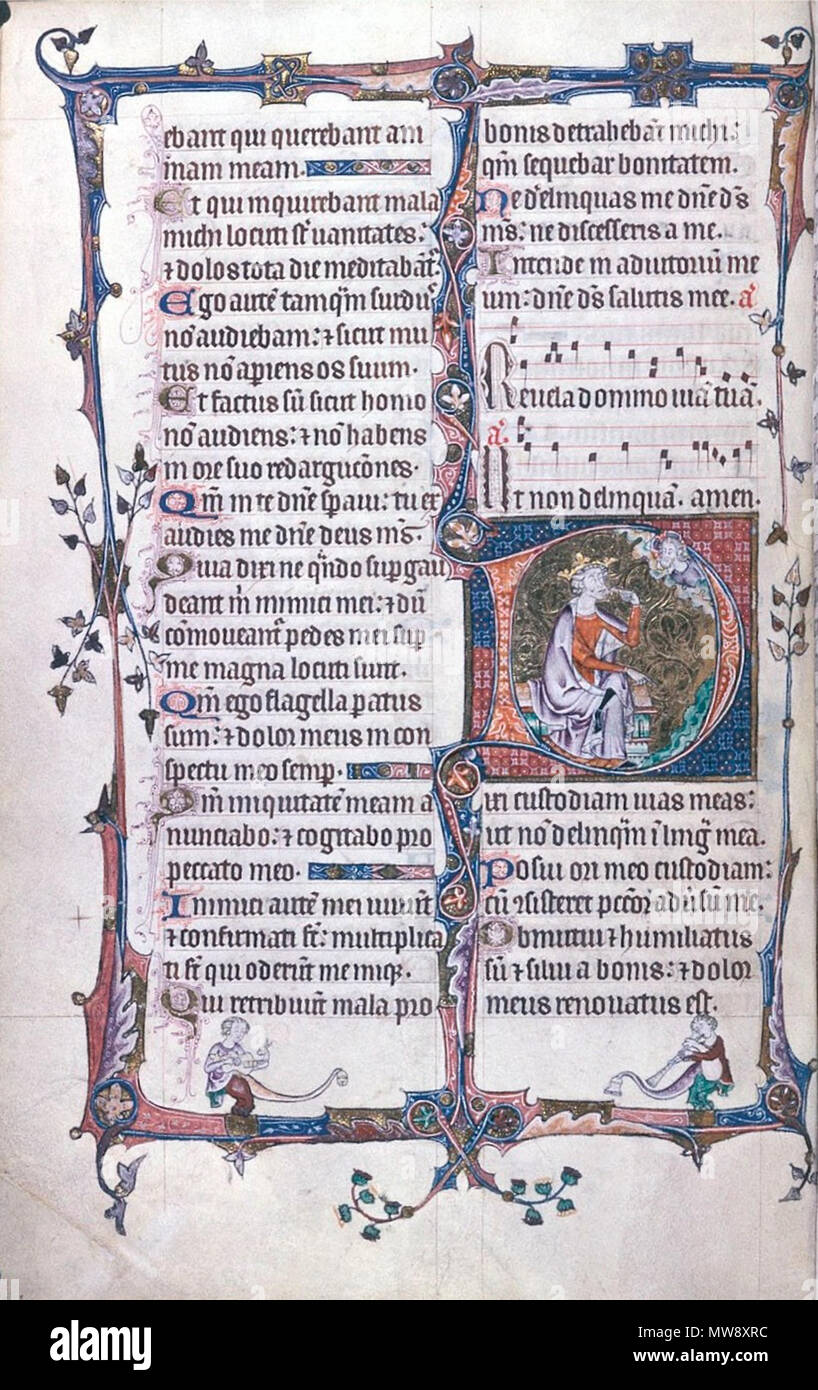 ebant qui querebant ani
mam meam.
Et qui inquirebant mala
michi locuti st̄ uanitates:
⁊ dolos tota die meditabāt̉.
Ego autē tamq̄m surdus
nō audiebam: ⁊ sicut mu
tus nō aperiens os suum.
Et factus sū sicut homo
nō audiens: ⁊ nō habens
in ore suo redargucōnes.
Qm̄ in te dn̄e spaui: tu ex
audies me dn̄e deus mc̄s.
Quia dixi ne qn̄do supgau
deant m̄ inimici mei: ⁊ dū
cōmoueant̉ pedes mei sup
me magna locuti sunt.
Qm̄ ego flagella paratus
sum: ⁊ dolor meus in con
spectu meo semp.
Qm̄ iniquitatē meam a
nunciabo: ⁊ cogitabo pro
peccato meo.
Inimici autē mei uiuūt
⁊ confirmati st̄: multiplica
ti st̄ qui oderūt me iniq̄.
Qui retribuūt mala pro
bonis detrahebāt michi:
qm̄ sequebar bonitatem.
Ne derelinquas me dn̄e ds̄
ms̄: ne discesseris a me.
Intende in adiutoriū me
um: dn̄e ds̄ salutis mee. a͛
Reuela domino uiā tuā.
a͛.
Ut non delinquā. amen.
Dixi custodiam uias meas:
ut nō delinq̄m ī lingˉ mea.
Posui ori meo custodiam:
cū ꝯsisteret pecc̄or aduˉsū me.
Obmutui ⁊ humiliatus
sū ⁊ silui a bonis: ⁊ dolor
meus renouatus est.
alamy
Image ID: MW8XRC
www.alamy.com